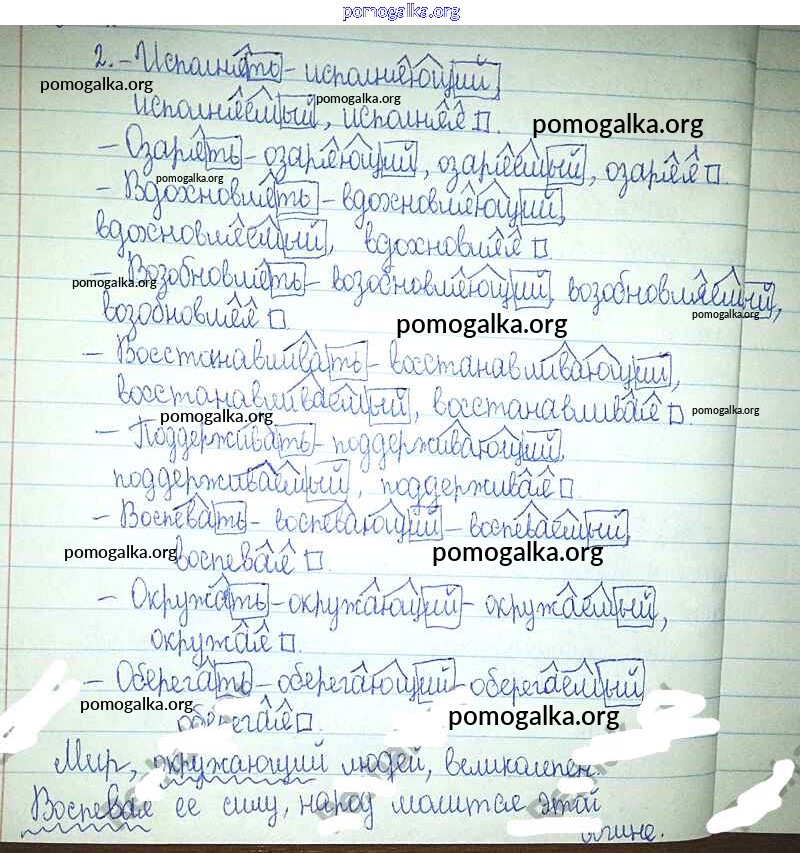 pomogalka.org
2. - Исполнять - исполняющий,
pomogalka.org
исполняемый, исполняя.
pomogalka.org
pomogalka.org
- Озарять - озаряющий, озаряемый, озаряя.
pomogalka.org
- Вдохновлять - вдохновляющий,
вдохновляемый, вдохновляя.
- Возобновлять - возобновляющий, возобновляемый,
pomogalka.org
возобновляя.
pomogalka.org
pomogalka.org
- Восстанавливать - восстанавливающий,
восстанавливаемый, восстанавливая.
pomogalka.org
pomogalka.org
- Поддерживать - поддерживающий,
поддерживаемый, поддерживая.
- Воспевать - воспевающий - воспеваемый,
pomogalka.org
воспевая.
pomogalka.org
- Окружать - окружающий - окружаемый,
окружая.
- Оберегать - оберегающий - оберегаемый
pomogalka.org
оберегая.
pomogalka.org
Мир, окружающий людей, великолепен.
Воспевая ее силу, народ молится этой